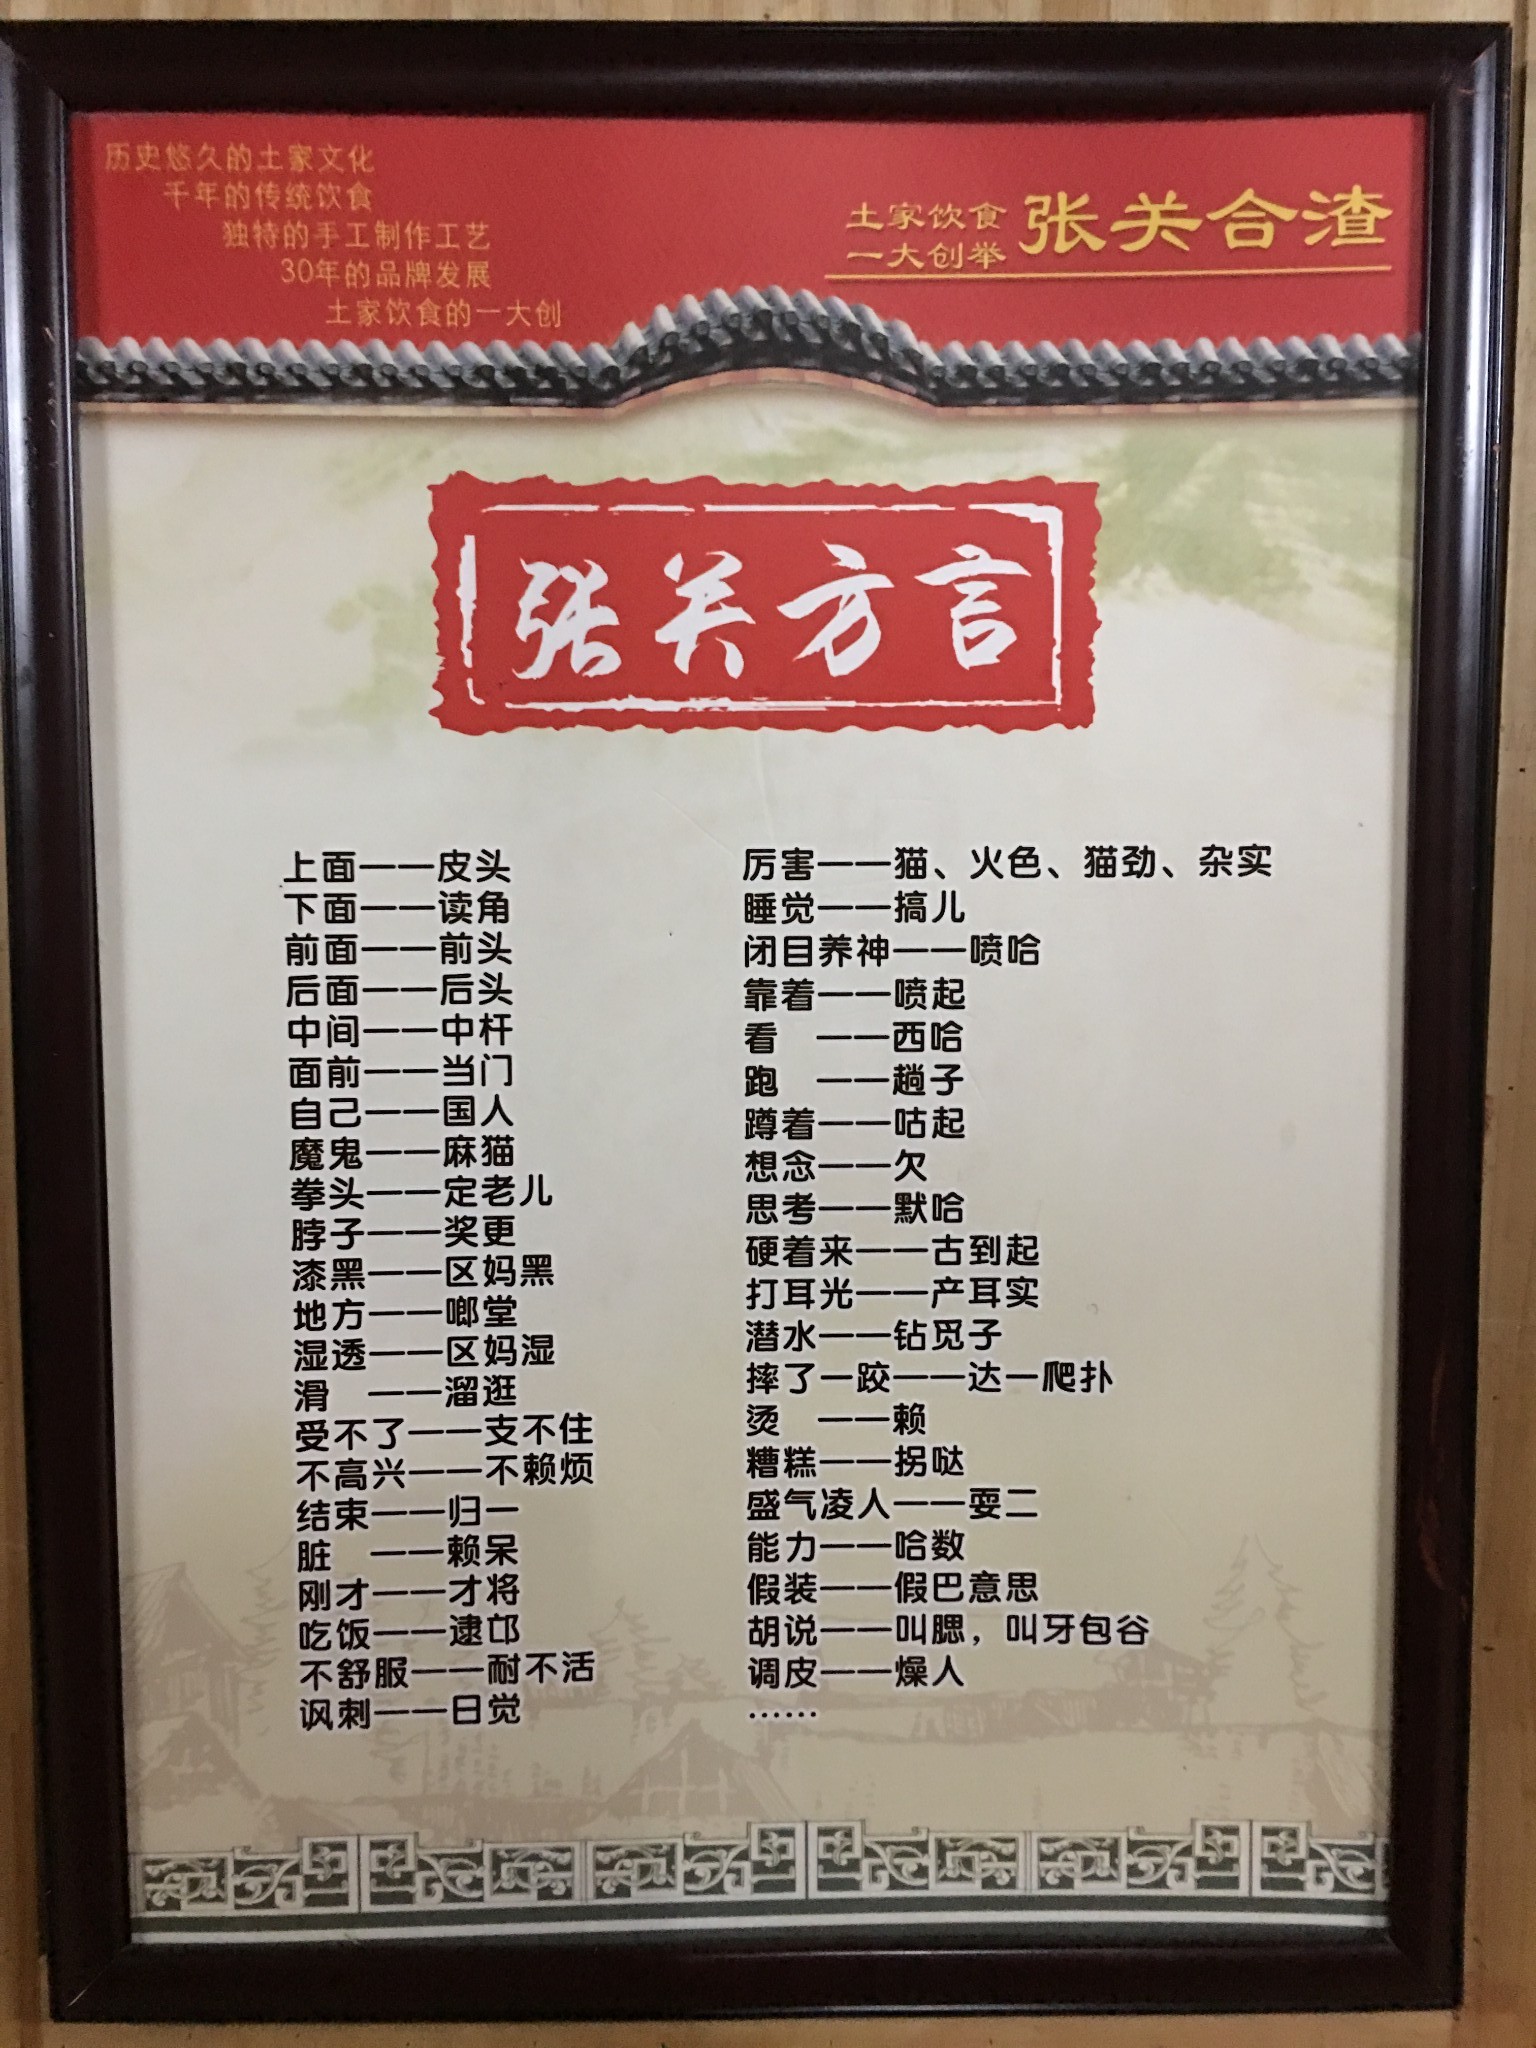 历史悠久的土家文化
千年的传统饮食
独特的手工制作工艺
30年的品牌发展
土家饮食的一大创
土家饮食
一大创举
张关合渣
张关方言
上面——皮头
下面——读角
前面——前头
后面——后头
中间——中杆
面前——当门
自己——国人
魔鬼——麻猫
拳头——定老儿
脖子——奖更
漆黑——区妈黑
地方——啷堂
湿透——区妈湿
滑　——溜逛
受不了——支不住
不高兴——不赖烦
结束——归一
脏　——赖呆
刚才——才将
吃饭——逮邙
不舒服——耐不活
讽刺——日觉
厉害——猫、火色、猫劲、杂实
睡觉——搞儿
闭目养神——喷哈
靠着——喷起
看　——西哈
跑　——趟子
蹲着——咕起
想念——欠
思考——默哈
硬着来——古到起
打耳光——产耳实
潜水——钻觅子
摔了一跤——达一爬扑
烫　——赖
糟糕——拐哒
盛气凌人——耍二
能力——哈数
假装——假巴意思
胡说——叫腮，叫牙包谷
调皮——燥人
……